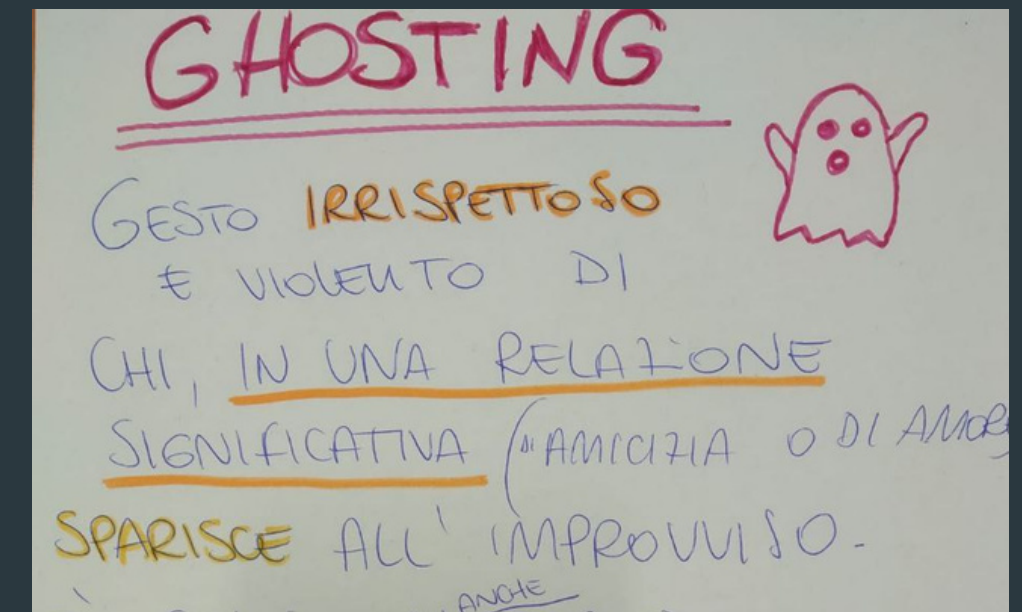 GHOSTING
GESTO IRRISPETTOSO
E VIOLENTO DI
CHI, IN UNA RELAZIONE
SIGNIFICATIVA (DI AMICIZIA O DI AMOR
SPARISCE ALL'IMPROVVISO.
ANCHE